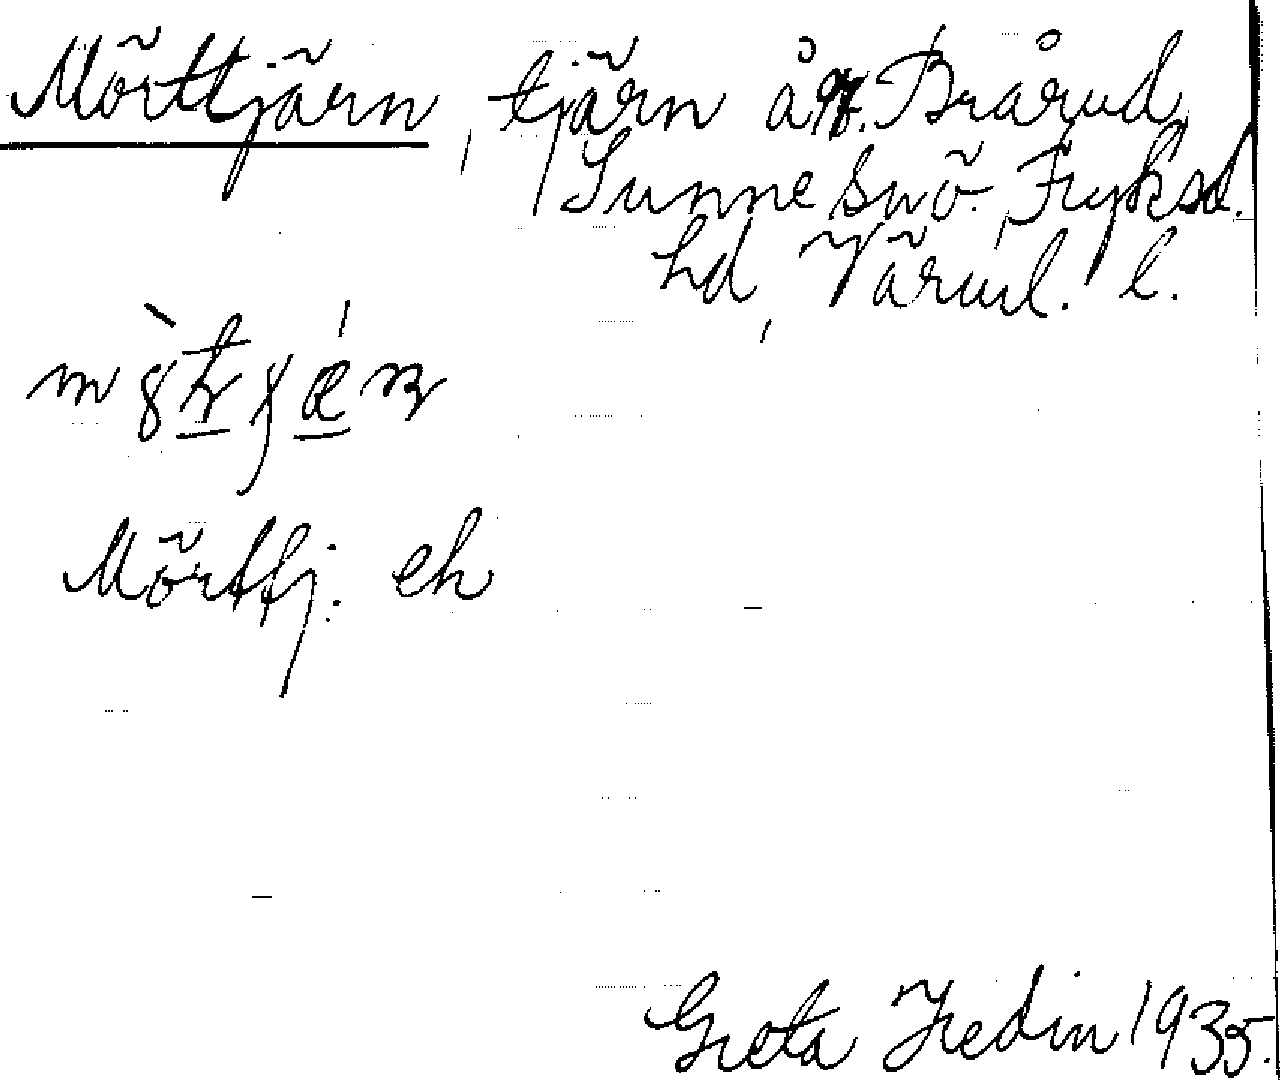 Mörttjärn, tjärn å Brårud,
Sunne snö. Fryksd.
hd, Värml. l.
Mörttj. eh
Greta Hedin 1935.